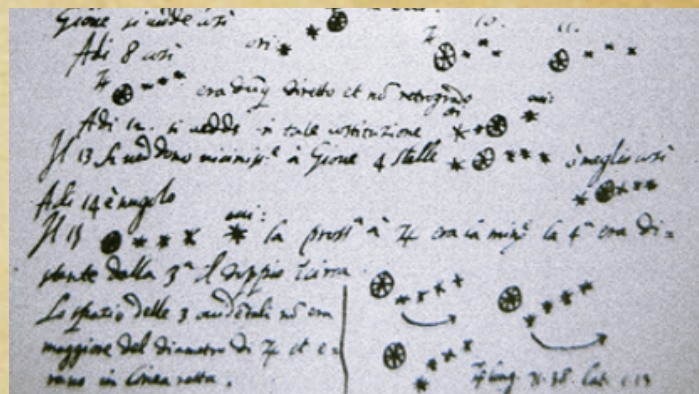 Gione si vedde così
Adi 8 così
10. 11.
era dũq diretto et nõ retrogrado
Adi 12. si vedde in tale costituzione
Il 13 si veddono vicinisse à Gione 4 stelle è meglio così
Adi 14 è nugolo
Il 15 la prosse à ♃ era la mine la 4a era di=
stante dalla 3a il doppio
Lo spazio delle 3 occidentali nõ era
maggiore del diametro di ♃ et e=
rano in linea retta.
♃ long. 71.38 lat. 1.13